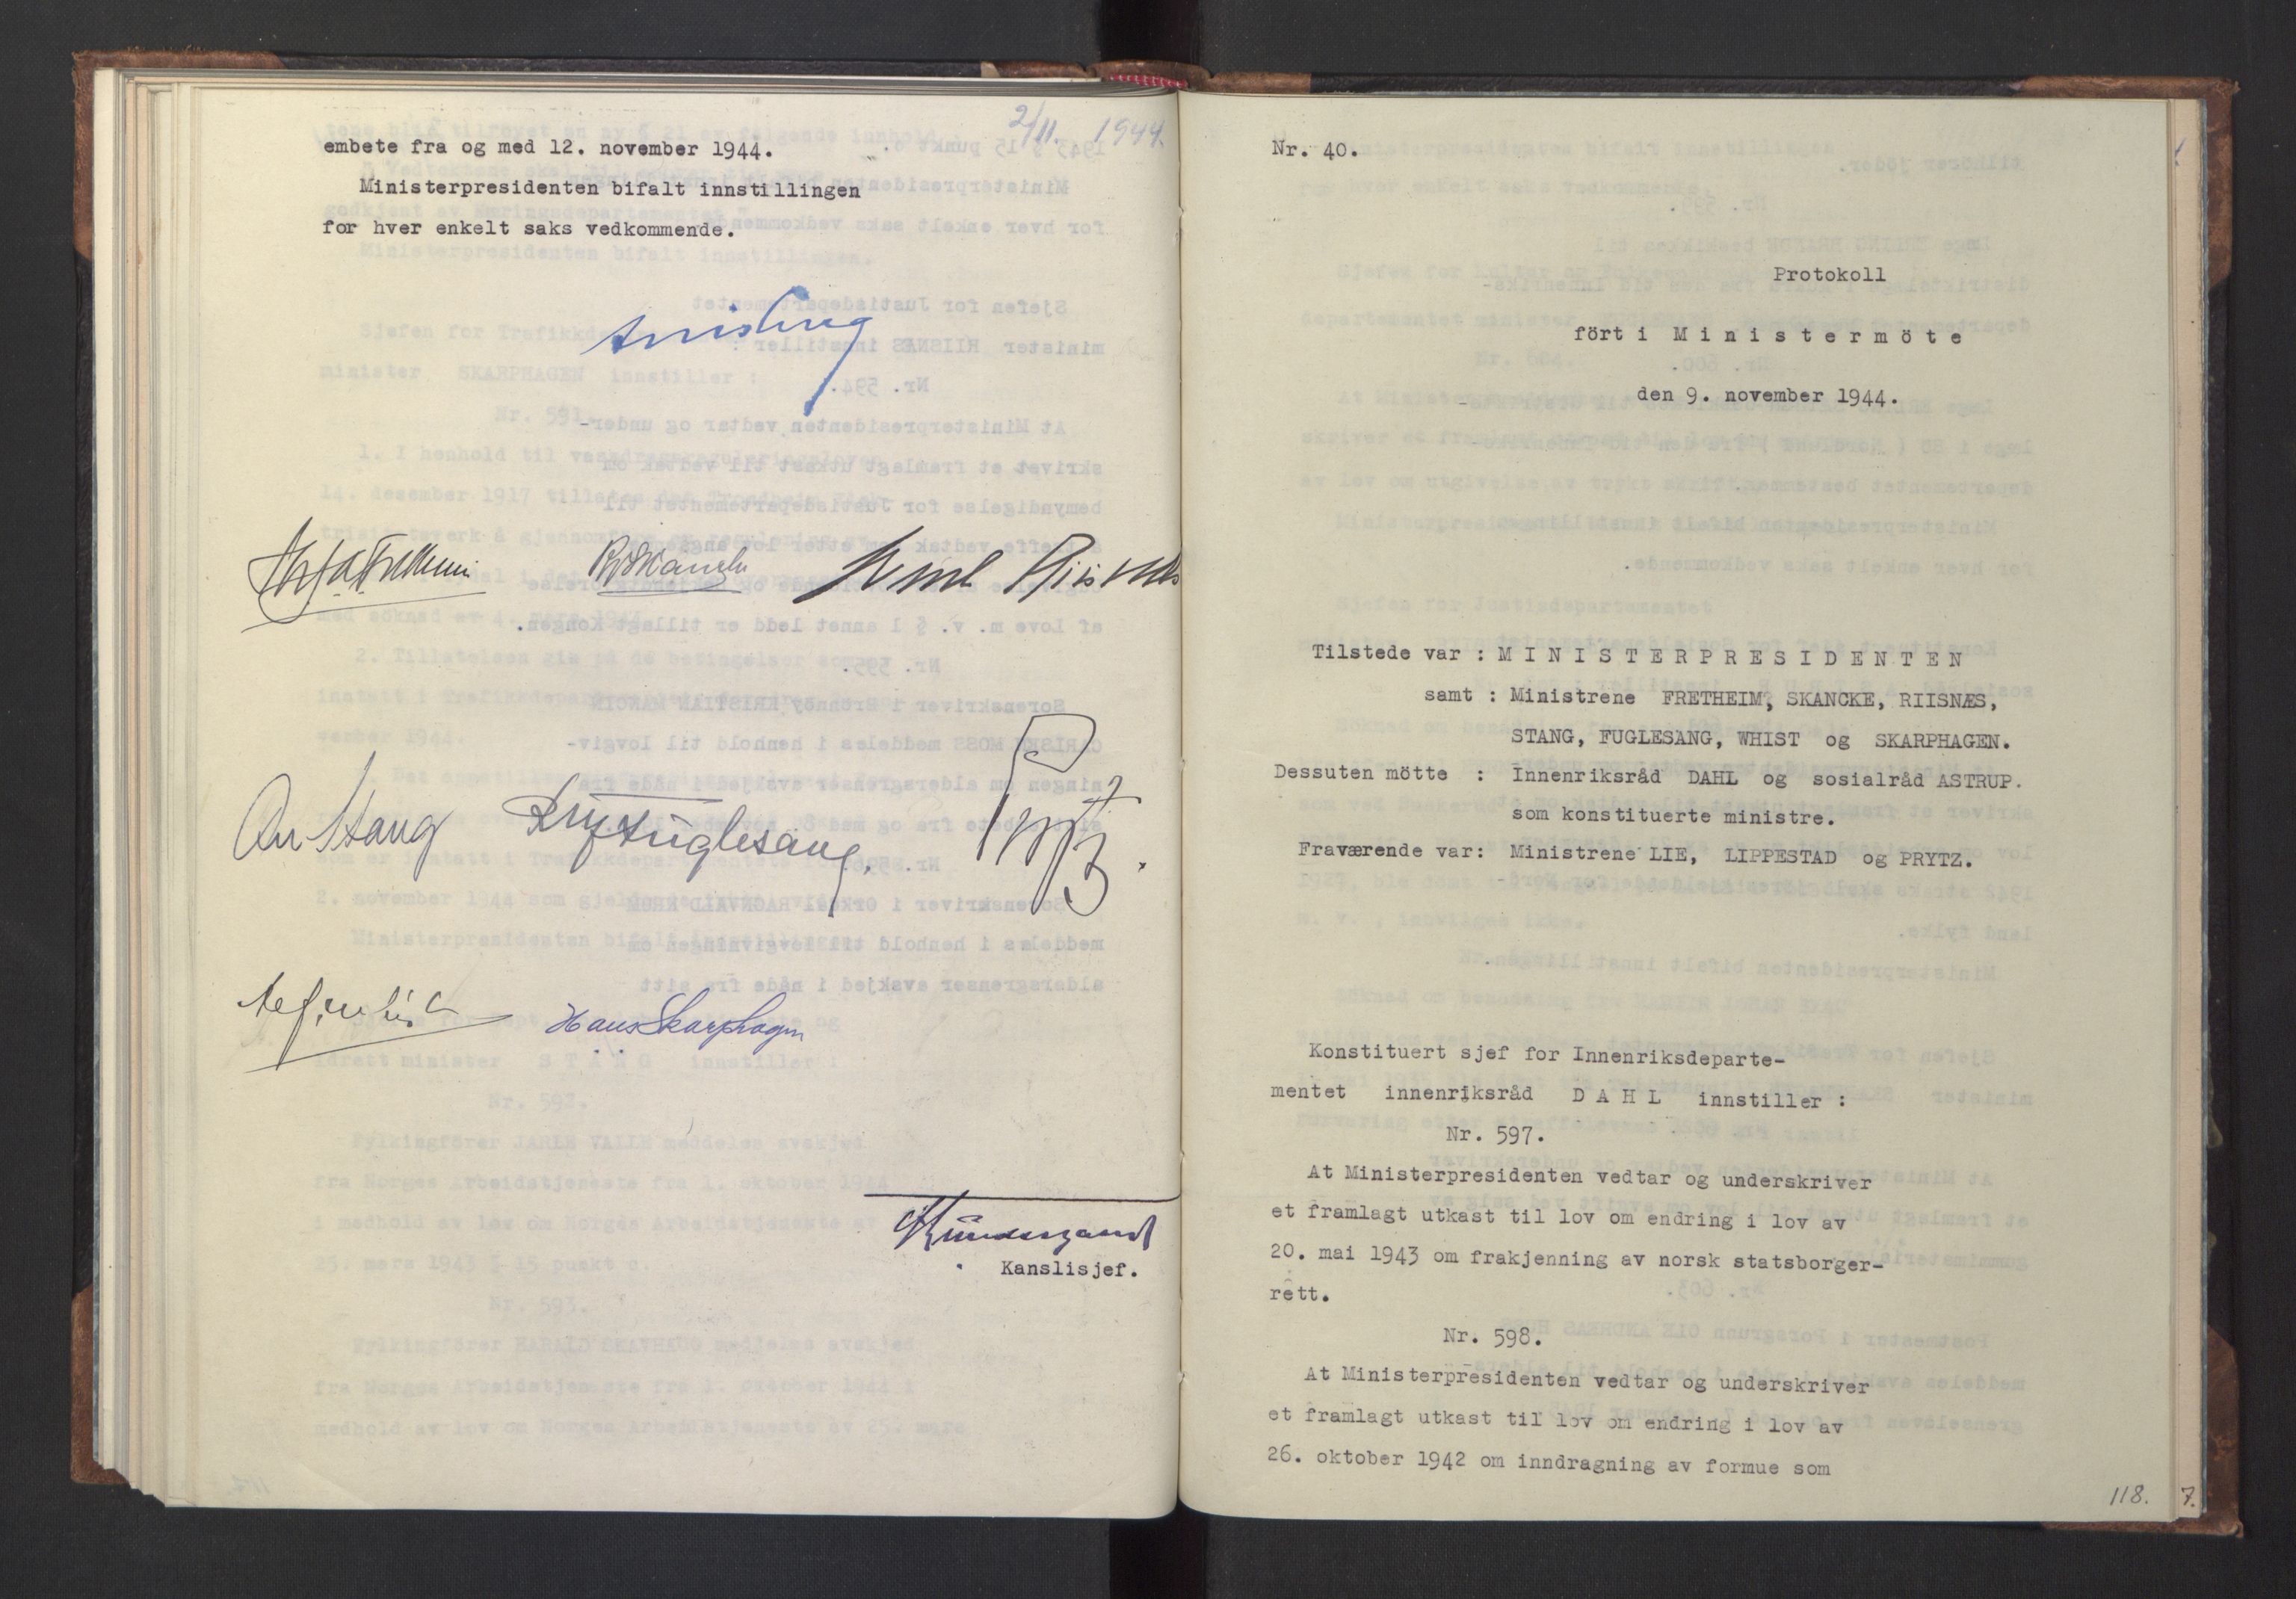 2/11. 1944.
embete fra og med 12. november 1944.
Ministerpresidenten bifalt innstillingen
for hver enkelt saks vedkommende.
Quisling
R Skancke
Riisnæs
Stang
Fuglesang.
Hans Skarphagen
Kanslisjef.
Nr. 40.
Protokoll
fört i Ministermöte
den 9. november 1944.
Tilstede var : MINISTERPRESIDENTEN
samt : Ministrene FRETHEIM, SKANCKE, RIISNÆS,
STANG, FUGLESANG, WHIST og SKARPHAGEN.
Dessuten mötte : Innenriksråd DAHL og sosialråd ASTRUP.
som konstituerte ministre.
Fraværende var: Ministrene LIE, LIPPESTAD og PRYTZ.
Konstituert sjef for Innenriksdeparte-
mentet innenriksråd DAHL innstiller :
Nr. 597.
At Ministerpresidenten vedtar og underskriver
et framlagt utkast til lov om endring i lov av
20. mai 1943 om frakjenning av norsk statsborger-
rett.
Nr. 598.
At Ministerpresidenten vedtar og underskriver
et framlagt utkast til lov om endring i lov av
26. oktober 1942 om inndragning av formue som
118.
7.